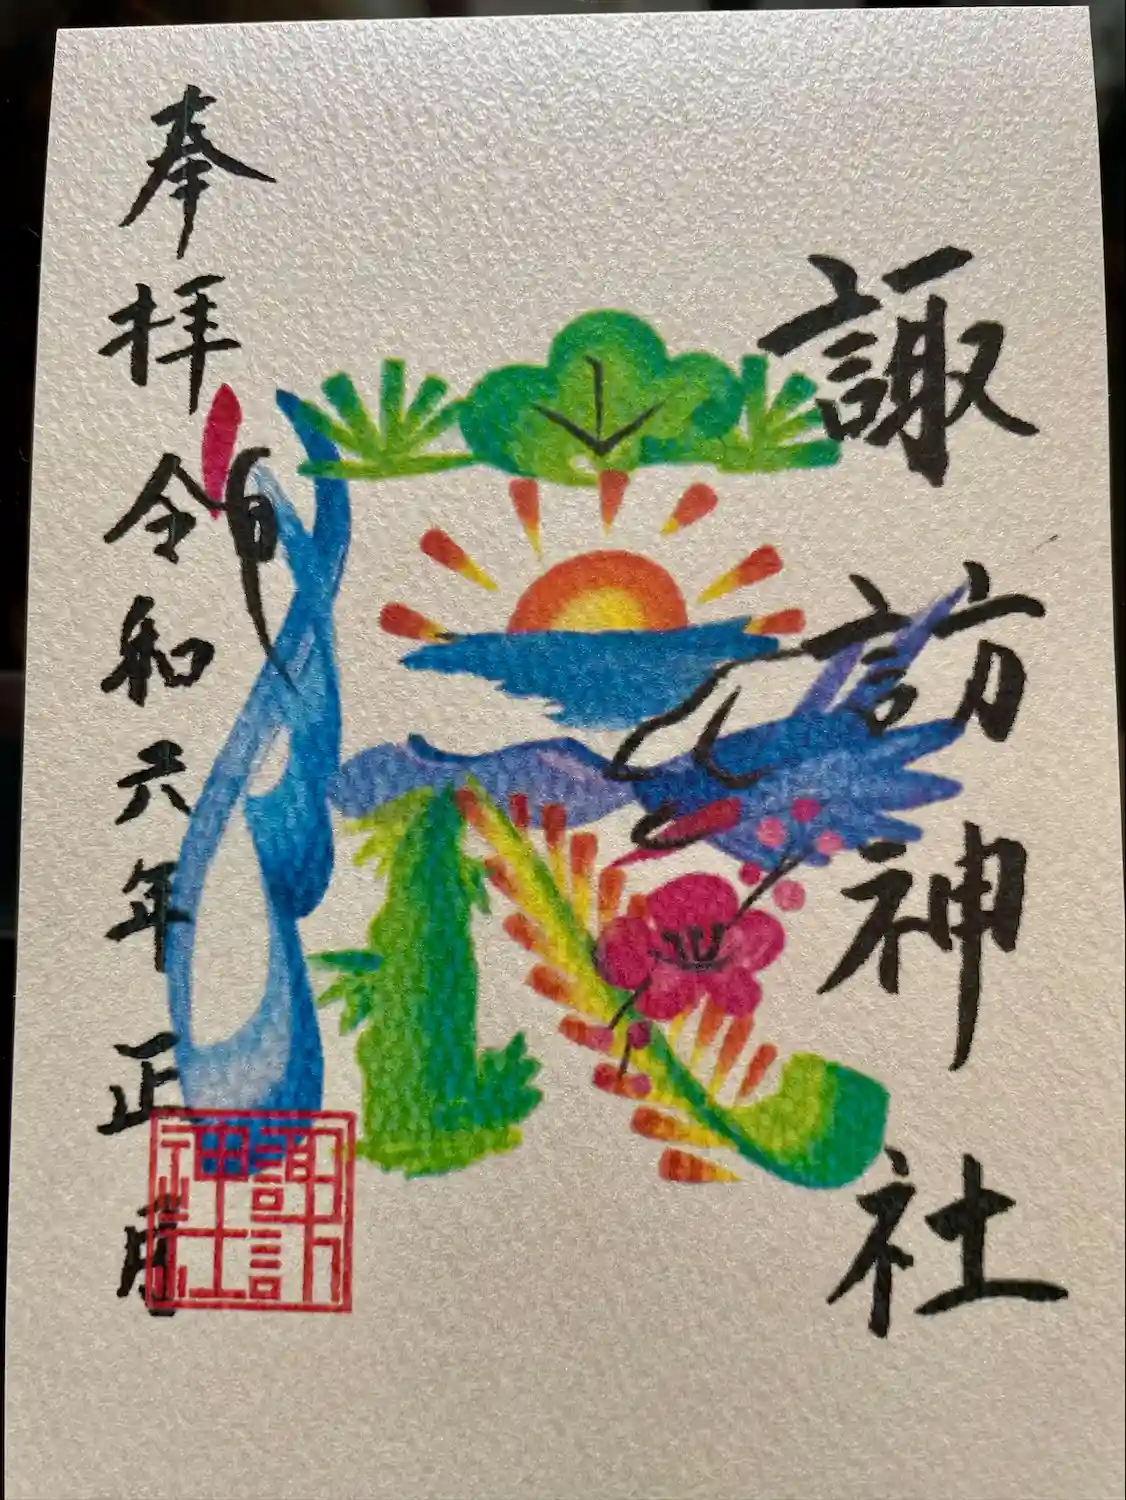 諏訪神社
辰
奉拝 令和六年正月
諏訪
神社